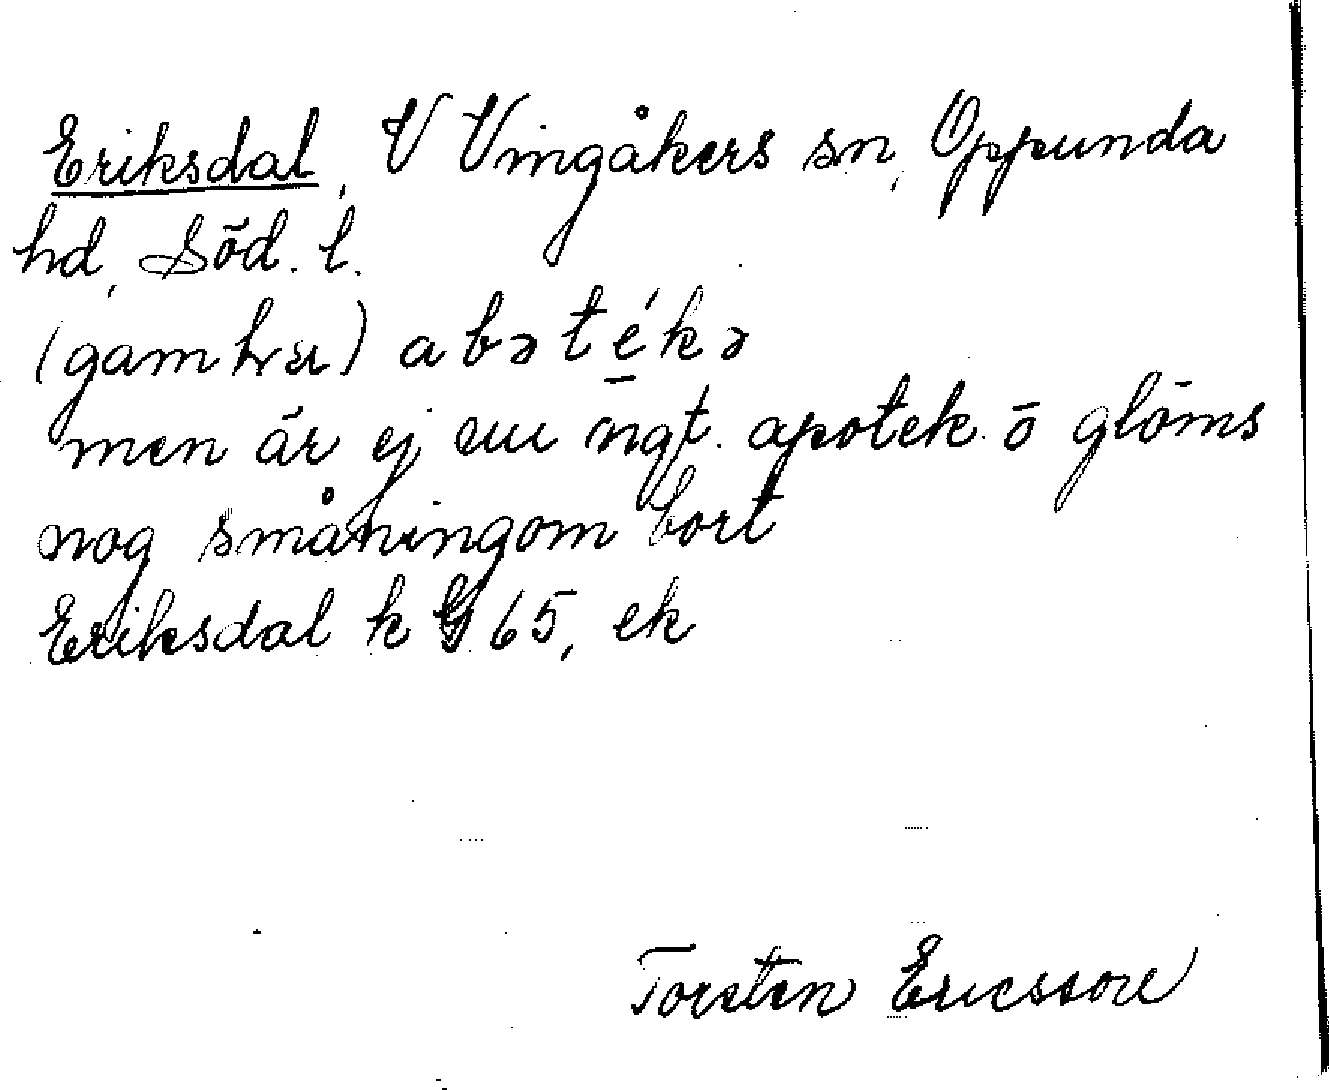 Eriksdal, V Vingåkers sn, Oppunda
hd, Söd. l.
(gamla) abət é̱kə
men är ej nu ngt. apotek. o glöms
nog småningom bort
Eriksdal k G 65, ek
Torsten Ericsson